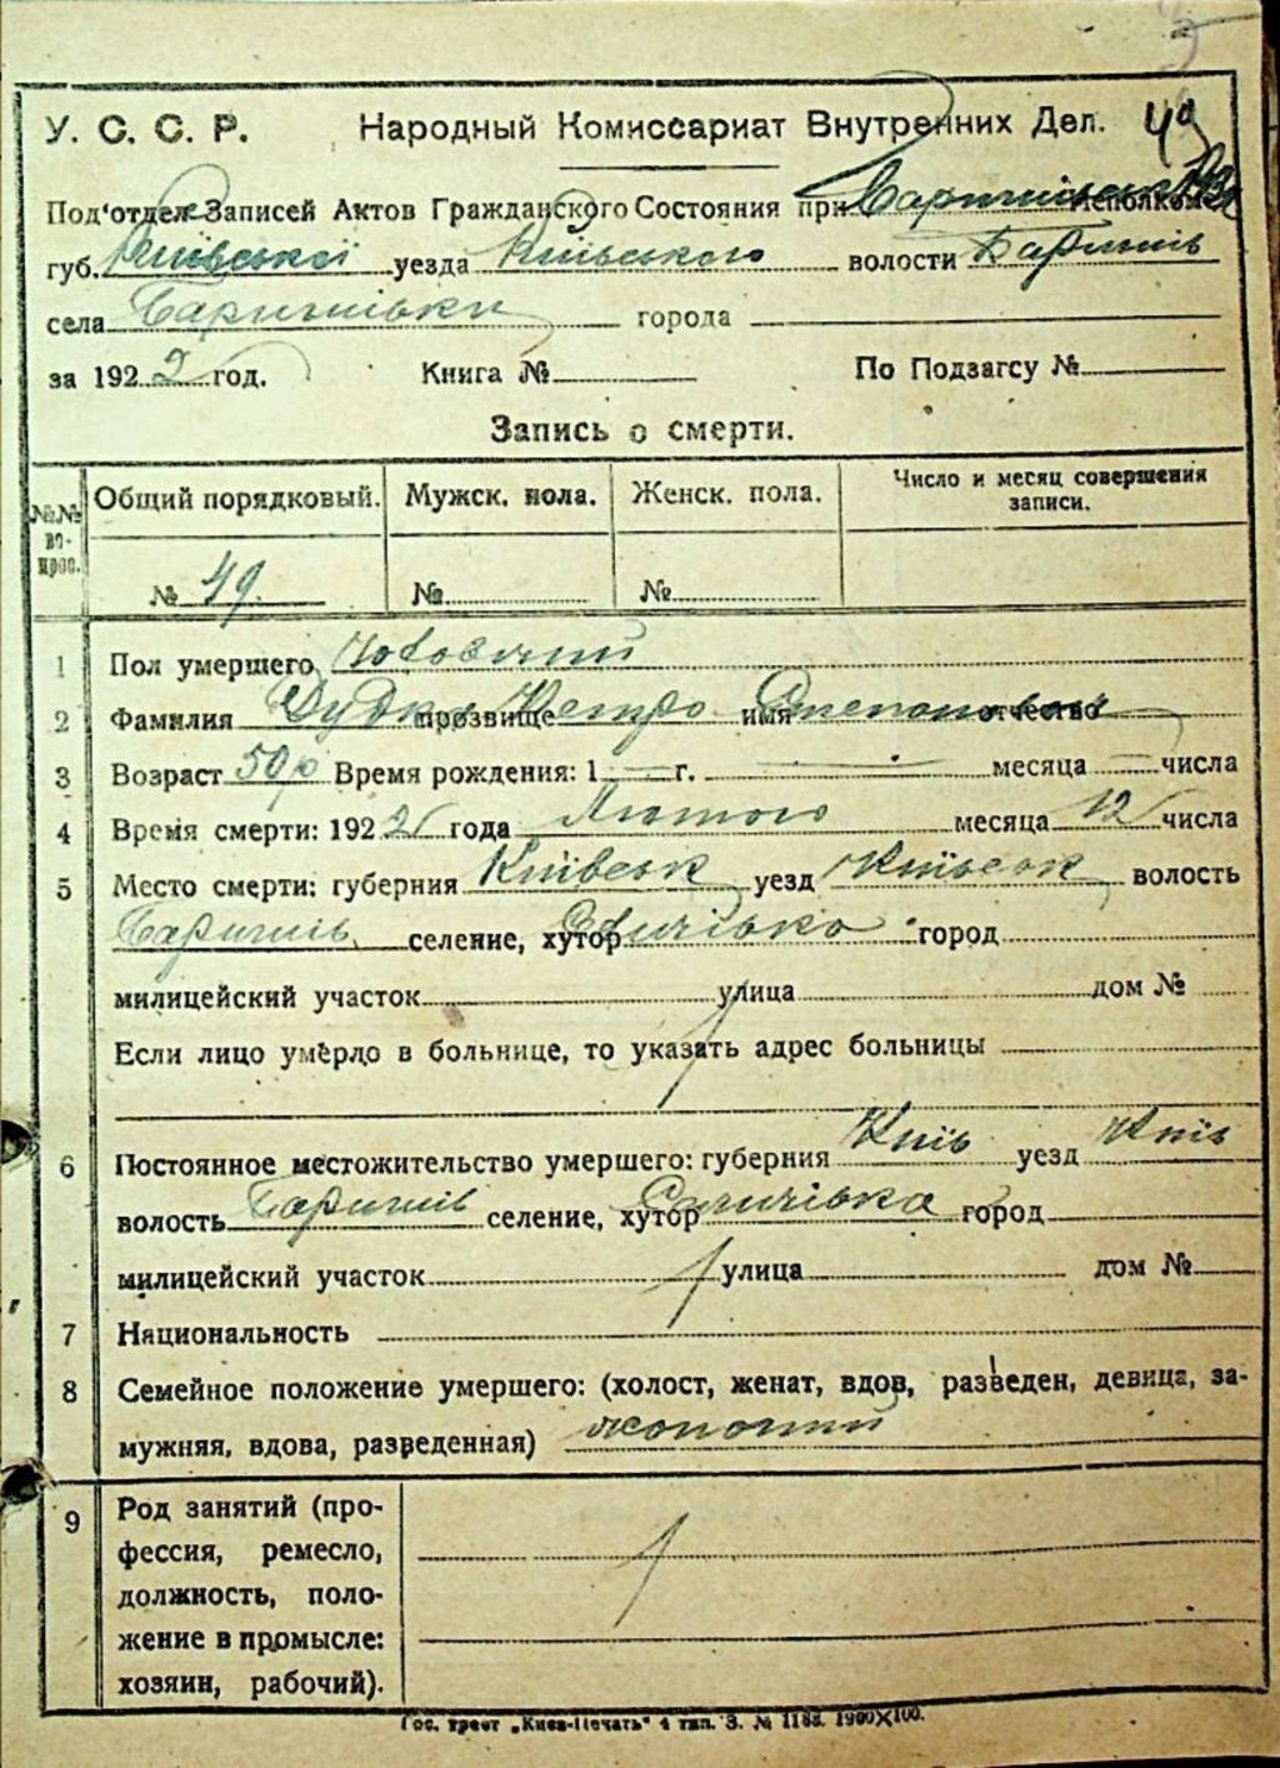 49
У. С. С. Р. Народный Комиссариат Внутренних Дел.
Под'отдел Записей Актов Гражданского Состояния при Исполкоме
губ. Київської уезда Київського волости Баришів
села Баришівки города
за 1922 год. Книга № По Подзагсу №
Запись о смерти.
№№ вопрос. Общий порядковый. Мужск. пола. Женск. пола. Число и месяц совершения записи.
№ 49. № №
1 Пол умершего Чоловічий
2 Фамилия Дудка прозвище Петро имя Степанович отчество
3 Возраст 50 р Время рождения: 1 — г. — месяца — числа
4 Время смерти: 1922 года Лютого месяца 12 числа
5 Место смерти: губерния Київськ уезд Київськ волость
Баришів селение, хутор город
милицейский участок улица дом №
Если лицо умерло в больнице, то указать адрес больницы
6 Постоянное местожительство умершего: губерния Київ уезд Київ
волость Баришів селение, хутор город
милицейский участок улица дом №
7 Национальность
8 Семейное положение умершего: (холост, женат, вдов, разведен, девица, за-
мужняя, вдова, разведенная) жонатий
9 Род занятий (про-
фессия, ремесло,
должность, поло-
жение в промысле:
хозяин, рабочий).
Гос. трест „Киев-Печать" 4 тип. З. № 1183. 1900×100.